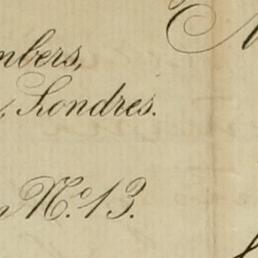 mbers,
, Londres.
Nº 13.